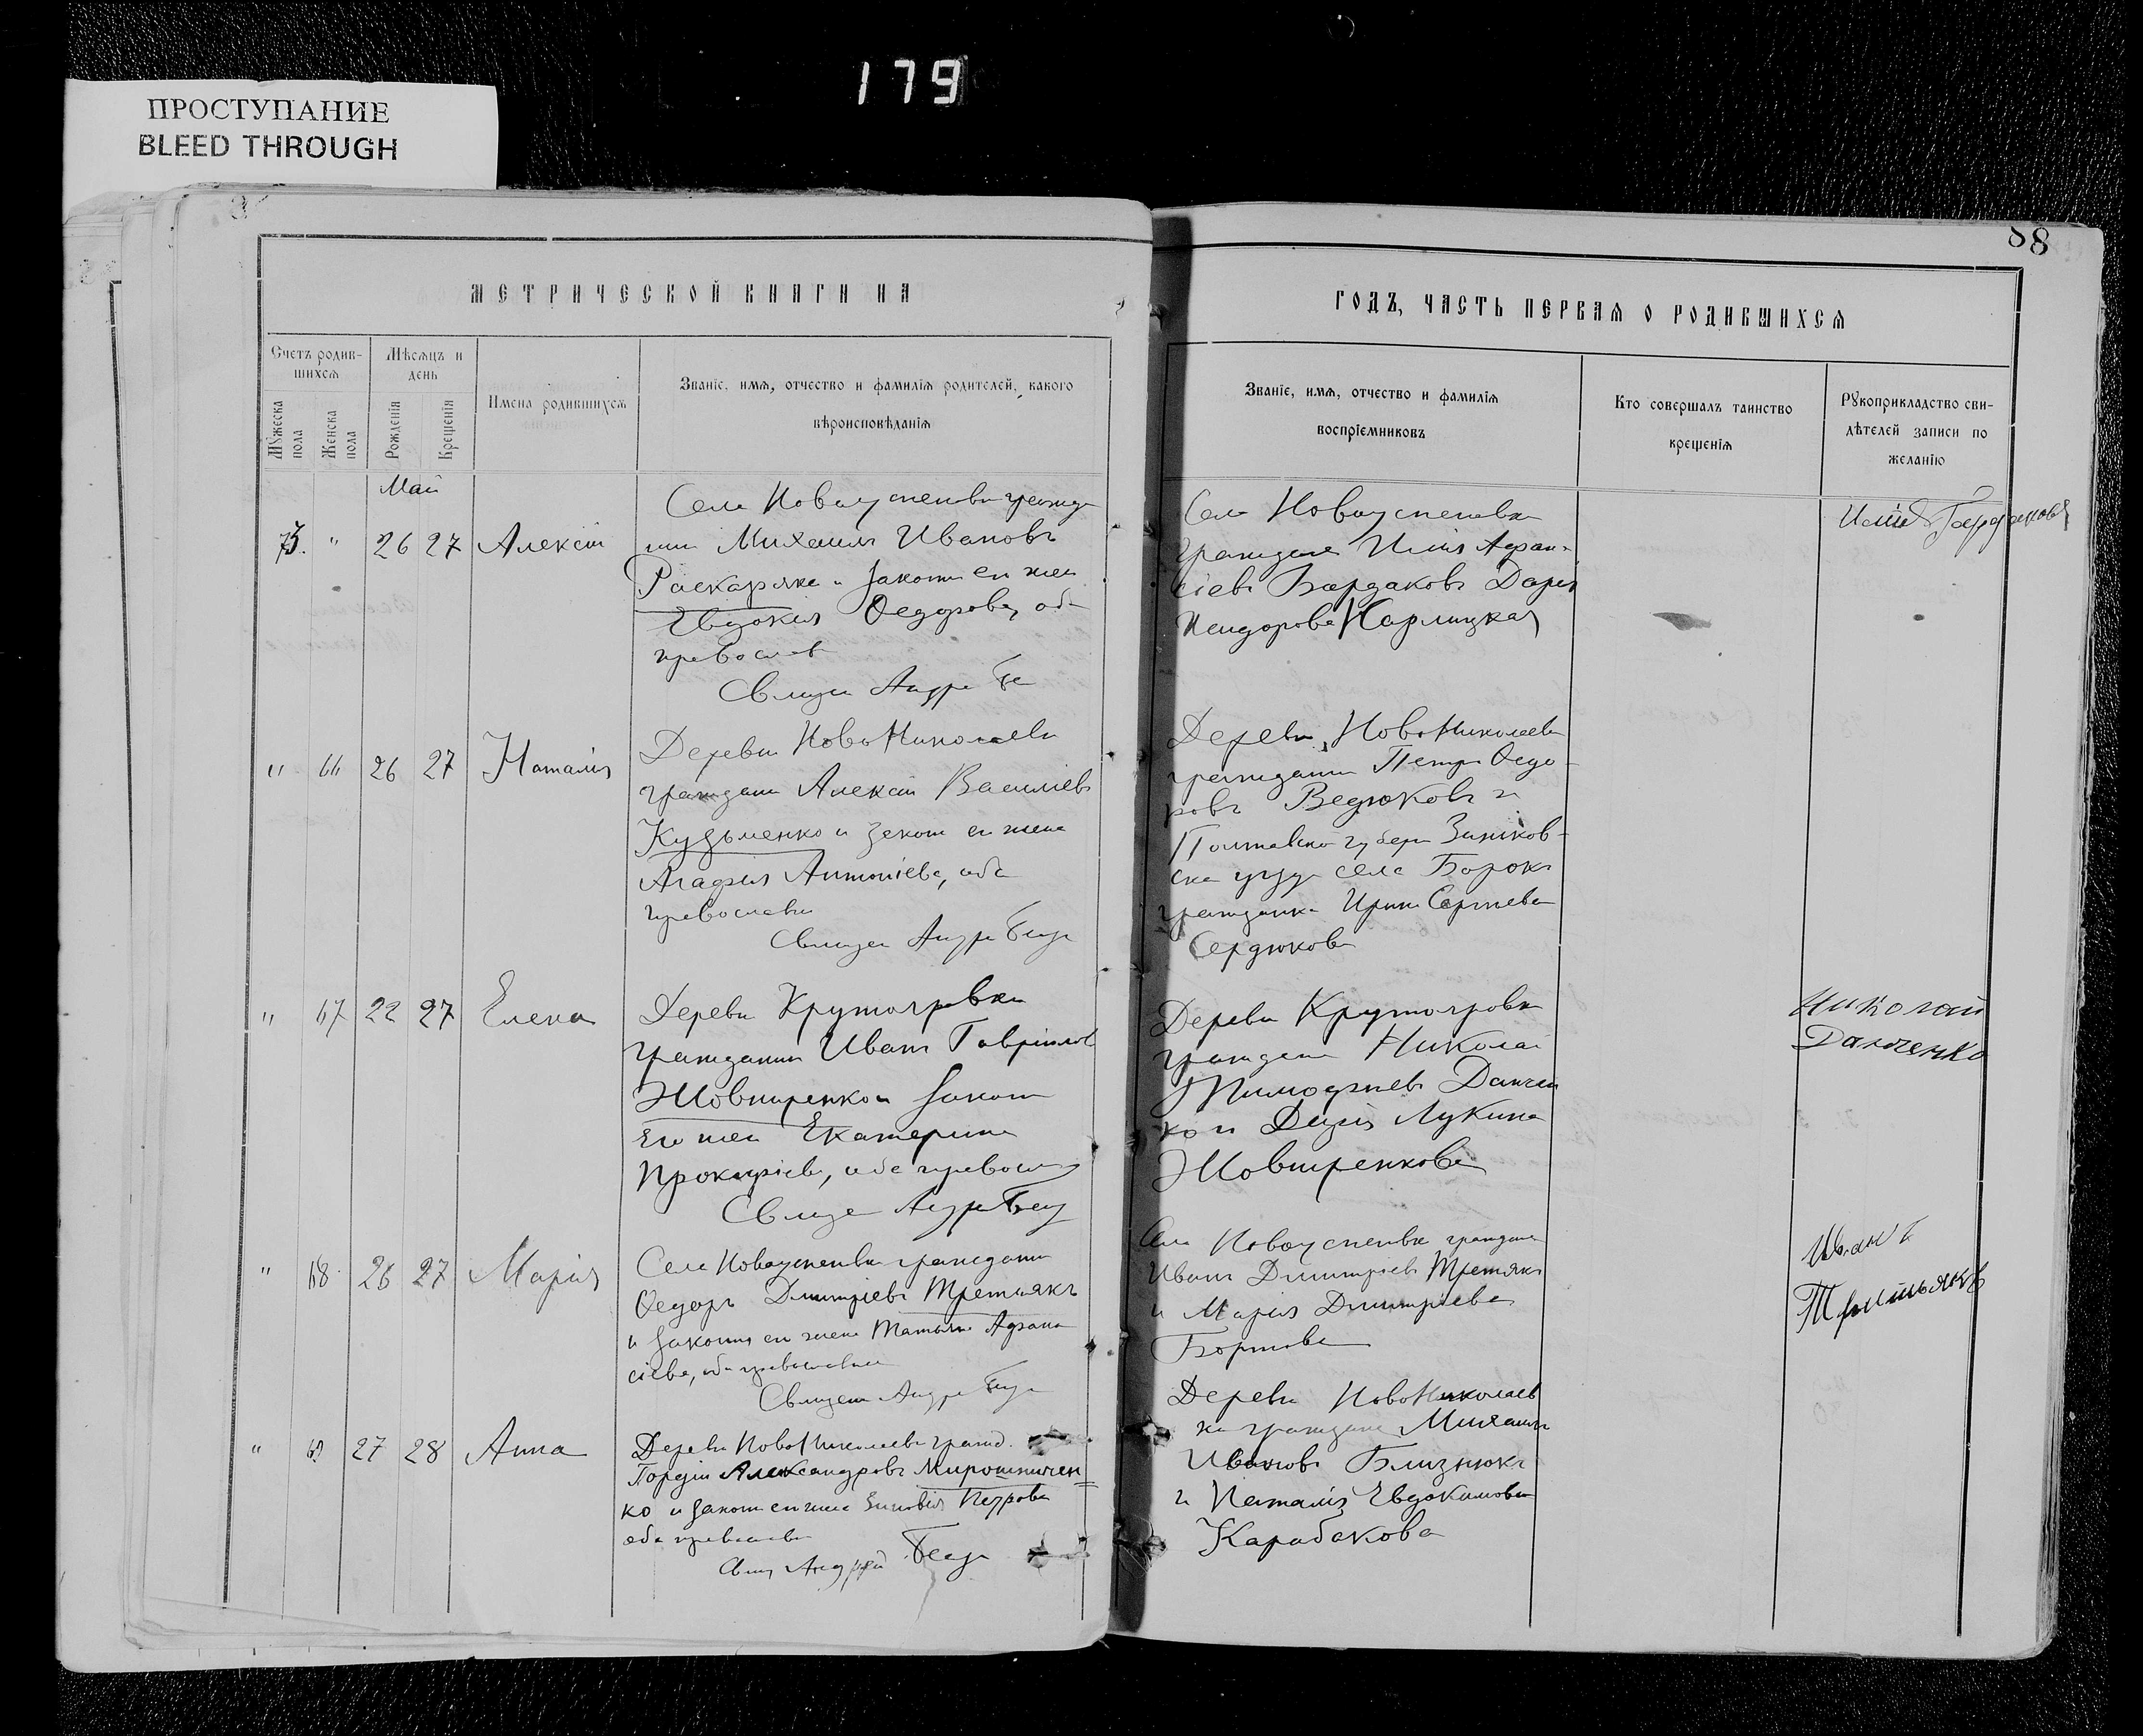 179
ПРОСТУПАНИЕ
BLEED THROUGH
88
МЕТРИЧЕСКОЙ КНИГИ НА
ГОДЪ, ЧАСТЬ ПЕРВАЯ О РОДИВШИХСЯ
Счетъ родив-
шихся
Мѣсяцъ и
день
Мужеска
пола
Женска
пола
Рожденія
Крещенія
Имена родившихся
Званіе, имя, отчество и фамилія родителей, какого
вѣроисповѣданія
Званіе, имя, отчество и фамилія
воспріемниковъ
Кто совершалъ таинство
крещенія
Рукоприкладство сви-
дѣтелей записи по
желанію
Май
" 26 27 Алексій
Села Новоуспеновки
Михаилъ Ивановъ
и
Евдокия Федорова, оба
православ
Андре
Села Новоуспеновки
Илия Афана-
сіевъ Бардаковъ Дарія
Карлицкая
" 66 26 27 Наталія
Деревни НовоНиколаевки
Алексій Василіевъ
Кузьменко и закон его жена
Агафия Антоніева, оба
православны
Андре
Деревни НовоНиколаевки
гражданин Петръ Федо-
ровъ Ведюковъ и
Полтавской губерн Зиньков-
ска уезда села Борокъ
гражданка Ирина Сергіева
Сердюкова
" 67 22 27 Елена
Деревни Крутояровки
гражданин Иванъ Гавріиловъ
Жовниренко и закон
его жена Екатерина
оба православ
Андре
Деревни Крутояровки
Николай
Тимофіевъ Данчен
ко и Дарія Лукина
Жовниренкова
Николай
Данченко
" 68 26 27 Марія
Села Новоуспеновки гражданин
Федоръ Димитріевъ Третьякъ
и законн его жена Татьяна Афана
сіева, оба православны
Андре
Села Новоуспеновки
Иванъ Димитріевъ Третякъ
и Марія Димитріева
Бортова
Иванъ
Третьякъ
" 69 27 28 Анна
Деревни НовоНиколаевки гражд.
Гордій Александровъ Мирошничен
ко и закон его жена Зиновія Петрова
оба православны
Андрей
Деревни НовоНиколаев
ки Михаилъ
Ивановъ Близнюкъ
и Наталія Евдокимова
Карабакова